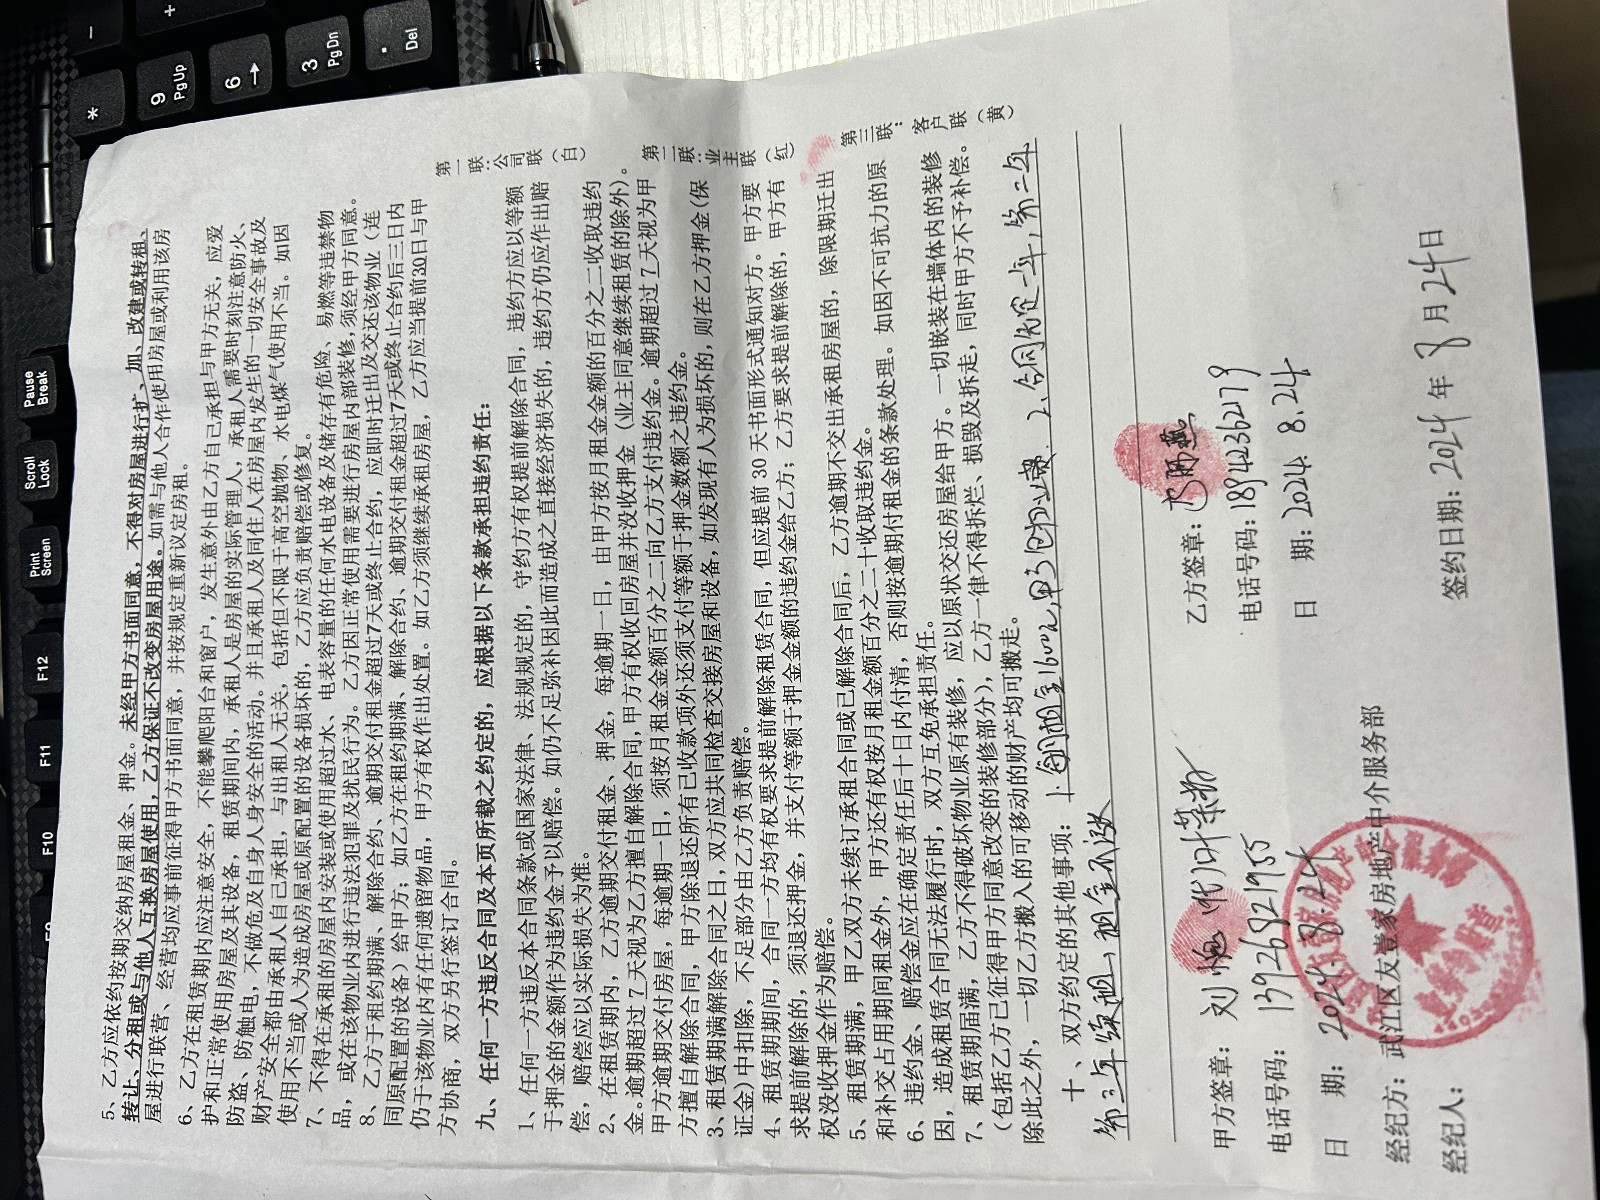 5、乙方应依约按期交纳房屋租金、押金。未经甲方书面同意，不得对房屋进行扩、加、改建或转租、
转让、分租或与他人互换房屋使用，乙方保证不改变房屋用途。如需与他人合作使用房屋或利用该房
屋进行联营、经营均应事前征得甲方书面同意，并按规定重新议定房租。
6、乙方在租赁期内应注意安全，不能攀爬阳台和窗户，发生意外由乙方自己承担与甲方无关，应爱
护和正常使用房屋及其设备，租赁期间内，承租人是房屋的实际管理人，承租人需要时刻注意防火、
防盗、防触电，不做危及自身人身安全的活动。并且承租人及同住人在房屋内发生的一切安全事故及
财产安全都由承租人自己承担，与出租人无关，包括但不限于高空抛物、水电煤气使用不当。如因
使用不当或人为造成房屋或原配置的设备损坏的，乙方应负责赔偿或修复。
7、不得在承租的房屋内安装或使用超过水、电表容量的任何水电设备及储存有危险、易燃等违禁物
品，或在该物业内进行违法犯罪及扰民行为。乙方因正常使用需要进行房屋内部装修，须经甲方同意。
8、乙方于租约期满、解除合约、逾期交付租金超过7天或终止合约，应即时迁出及交还该物业（连
同原配置的设备）给甲方；如乙方在租约期满、解除合约、逾期交付租金超过7天或终止合约后三日内
仍于该物业内有任何遗留物品，甲方有权作出处置。如乙方须继续承租房屋，乙方应当提前30日与甲
方协商，双方另行签订合同。
九、任何一方违反合同及本页所载之约定的，应根据以下条款承担违约责任：
1、任何一方违反本合同条款或国家法律、法规规定的，守约方有权提前解除合同，违约方应以等额
于押金的金额作为违约金予以赔偿。如仍不足弥补因此而造成之直接经济损失的，违约方仍应作出赔
偿，赔偿应以实际损失为准。
2、在租赁期内，乙方逾期交付租金、押金，每逾期一日，由甲方按月租金金额的百分之二收取违约
金。逾期超过7天视为乙方擅自解除合同，甲方有权收回房屋并没收押金（业主同意继续租赁的除外）。
甲方逾期交付房屋，每逾期一日，须按月租金金额百分之二向乙方支付违约金。逾期超过7天视为甲
方擅自解除合同，甲方除退还所有已收款项外还须支付等额于押金数额之违约金。
3、租赁期满解除合同之日，双方应共同检查交接房屋和设备，如发现有人为损坏的，则在乙方押金(保
证金)中扣除，不足部分由乙方负责赔偿。
4、租赁期期间，合同一方均有权要求提前解除租赁合同，但应提前30天书面形式通知对方。甲方要
求提前解除的，须退还押金，并支付等额于押金金额的违约金给乙方；乙方要求提前解除的，甲方有
权没收押金作为赔偿。
5、租赁期满，甲乙双方未续订承租合同或已解除合同后，乙方逾期不交出承租房屋的，除限期迁出
和补交占用期间租金外，甲方还有权按月租金额百分之二十收取违约金。
6、违约金、赔偿金应在确定责任后十日内付清，否则按逾期付租金的条款处理。如因不可抗力的原
因，造成租赁合同无法履行时，双方互免承担责任。
7、租赁期届满，乙方不得破坏物业原有装修，应以原状交还房屋给甲方。一切嵌装在墙体内的装修
（包括乙方已征得甲方同意改变的装修部分），乙方一律不得拆烂、损毁及拆走，同时甲方不予补偿。
除此之外，一切乙方搬入的可移动的财产均可搬走。
第一联：公司联（白）
第二联：业主联（红）
第三联：客户联（黄）
十、双方约定的其他事项：1.每月租金1600元,甲方包物业费. 2.合同先定一年,第二年
第三年续租,租金不涨
甲方签章：刘 张
乙方签章：
电话号码：13926821955
电话号码：18942236279
日 期：2024.8.24
日 期：2024.8.24
经纪方：武江区友壹家房地产中介服务部
经纪人：
签约日期：2024年8月24日
*
9
PgUp
6
3
PgDn
.
Del
-
+
Pause
Break
Scroll
Lock
Print
Screen
F12
F11
F10
F9